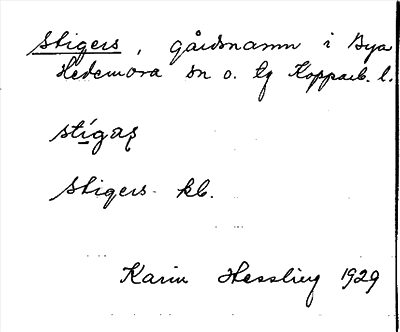 Stigers, gårdsnamn i Bya
Hedemora sn o. lg Kopparb. l.
stígaʂ
Stigers kb.
Karin Hessling 1929